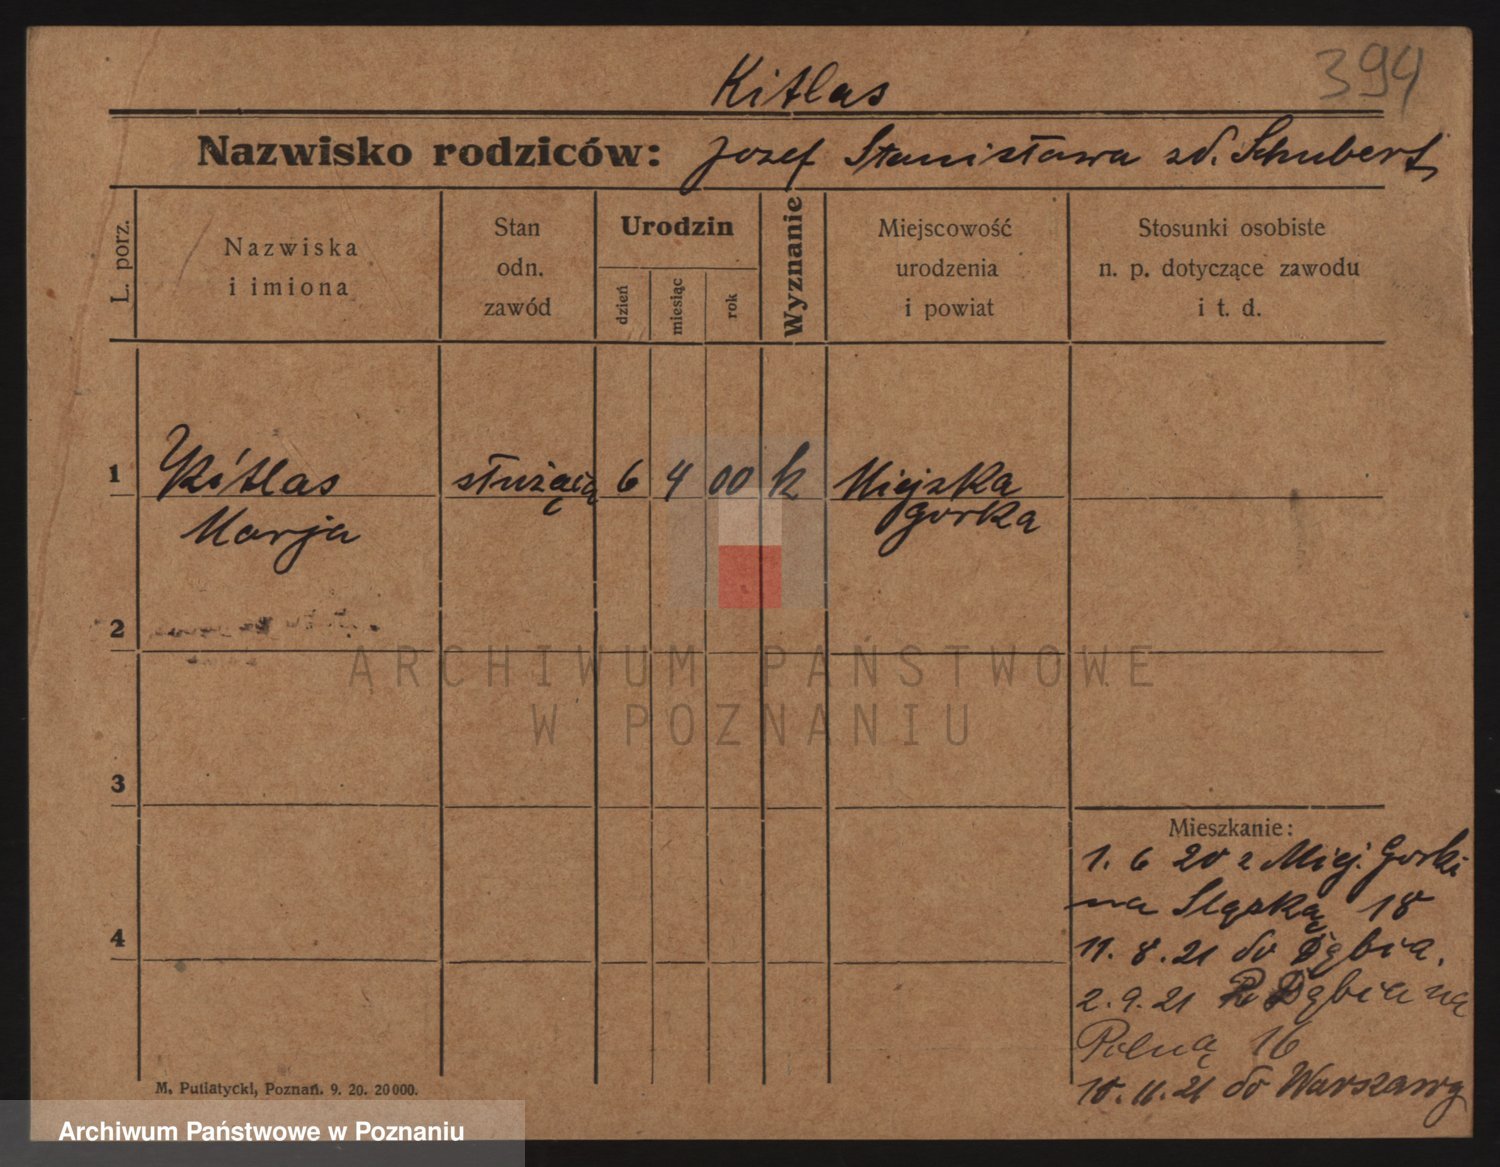 394
Kitlas
Nazwisko rodziców: Jozef Stanisława zd. Schubert
L. porz.
Nazwiska
i imiona
Stan
odn.
zawód
Urodzin
dzień
miesiąc
rok
Wyznanie
Miejscowość
urodzenia
i powiat
Stosunki osobiste
n. p. dotyczące zawodu
i t. d.
1 Kitlas służącą 6 4 00 k Miejska
Marja gorka
2
ARCHIWUM PAŃSTWOWE
W POZNANIU
3
Mieszkanie:
1. 6 20 z Miej. Gorki
na Sląską 18
4
11. 8. 21 do Dębia.
2. 9. 21 Dębia na
Polną 16
18. 11. 21 do Warszawy
M. Putiatycki, Poznań. 9. 20. 20000.
Archiwum Państwowe w Poznaniu